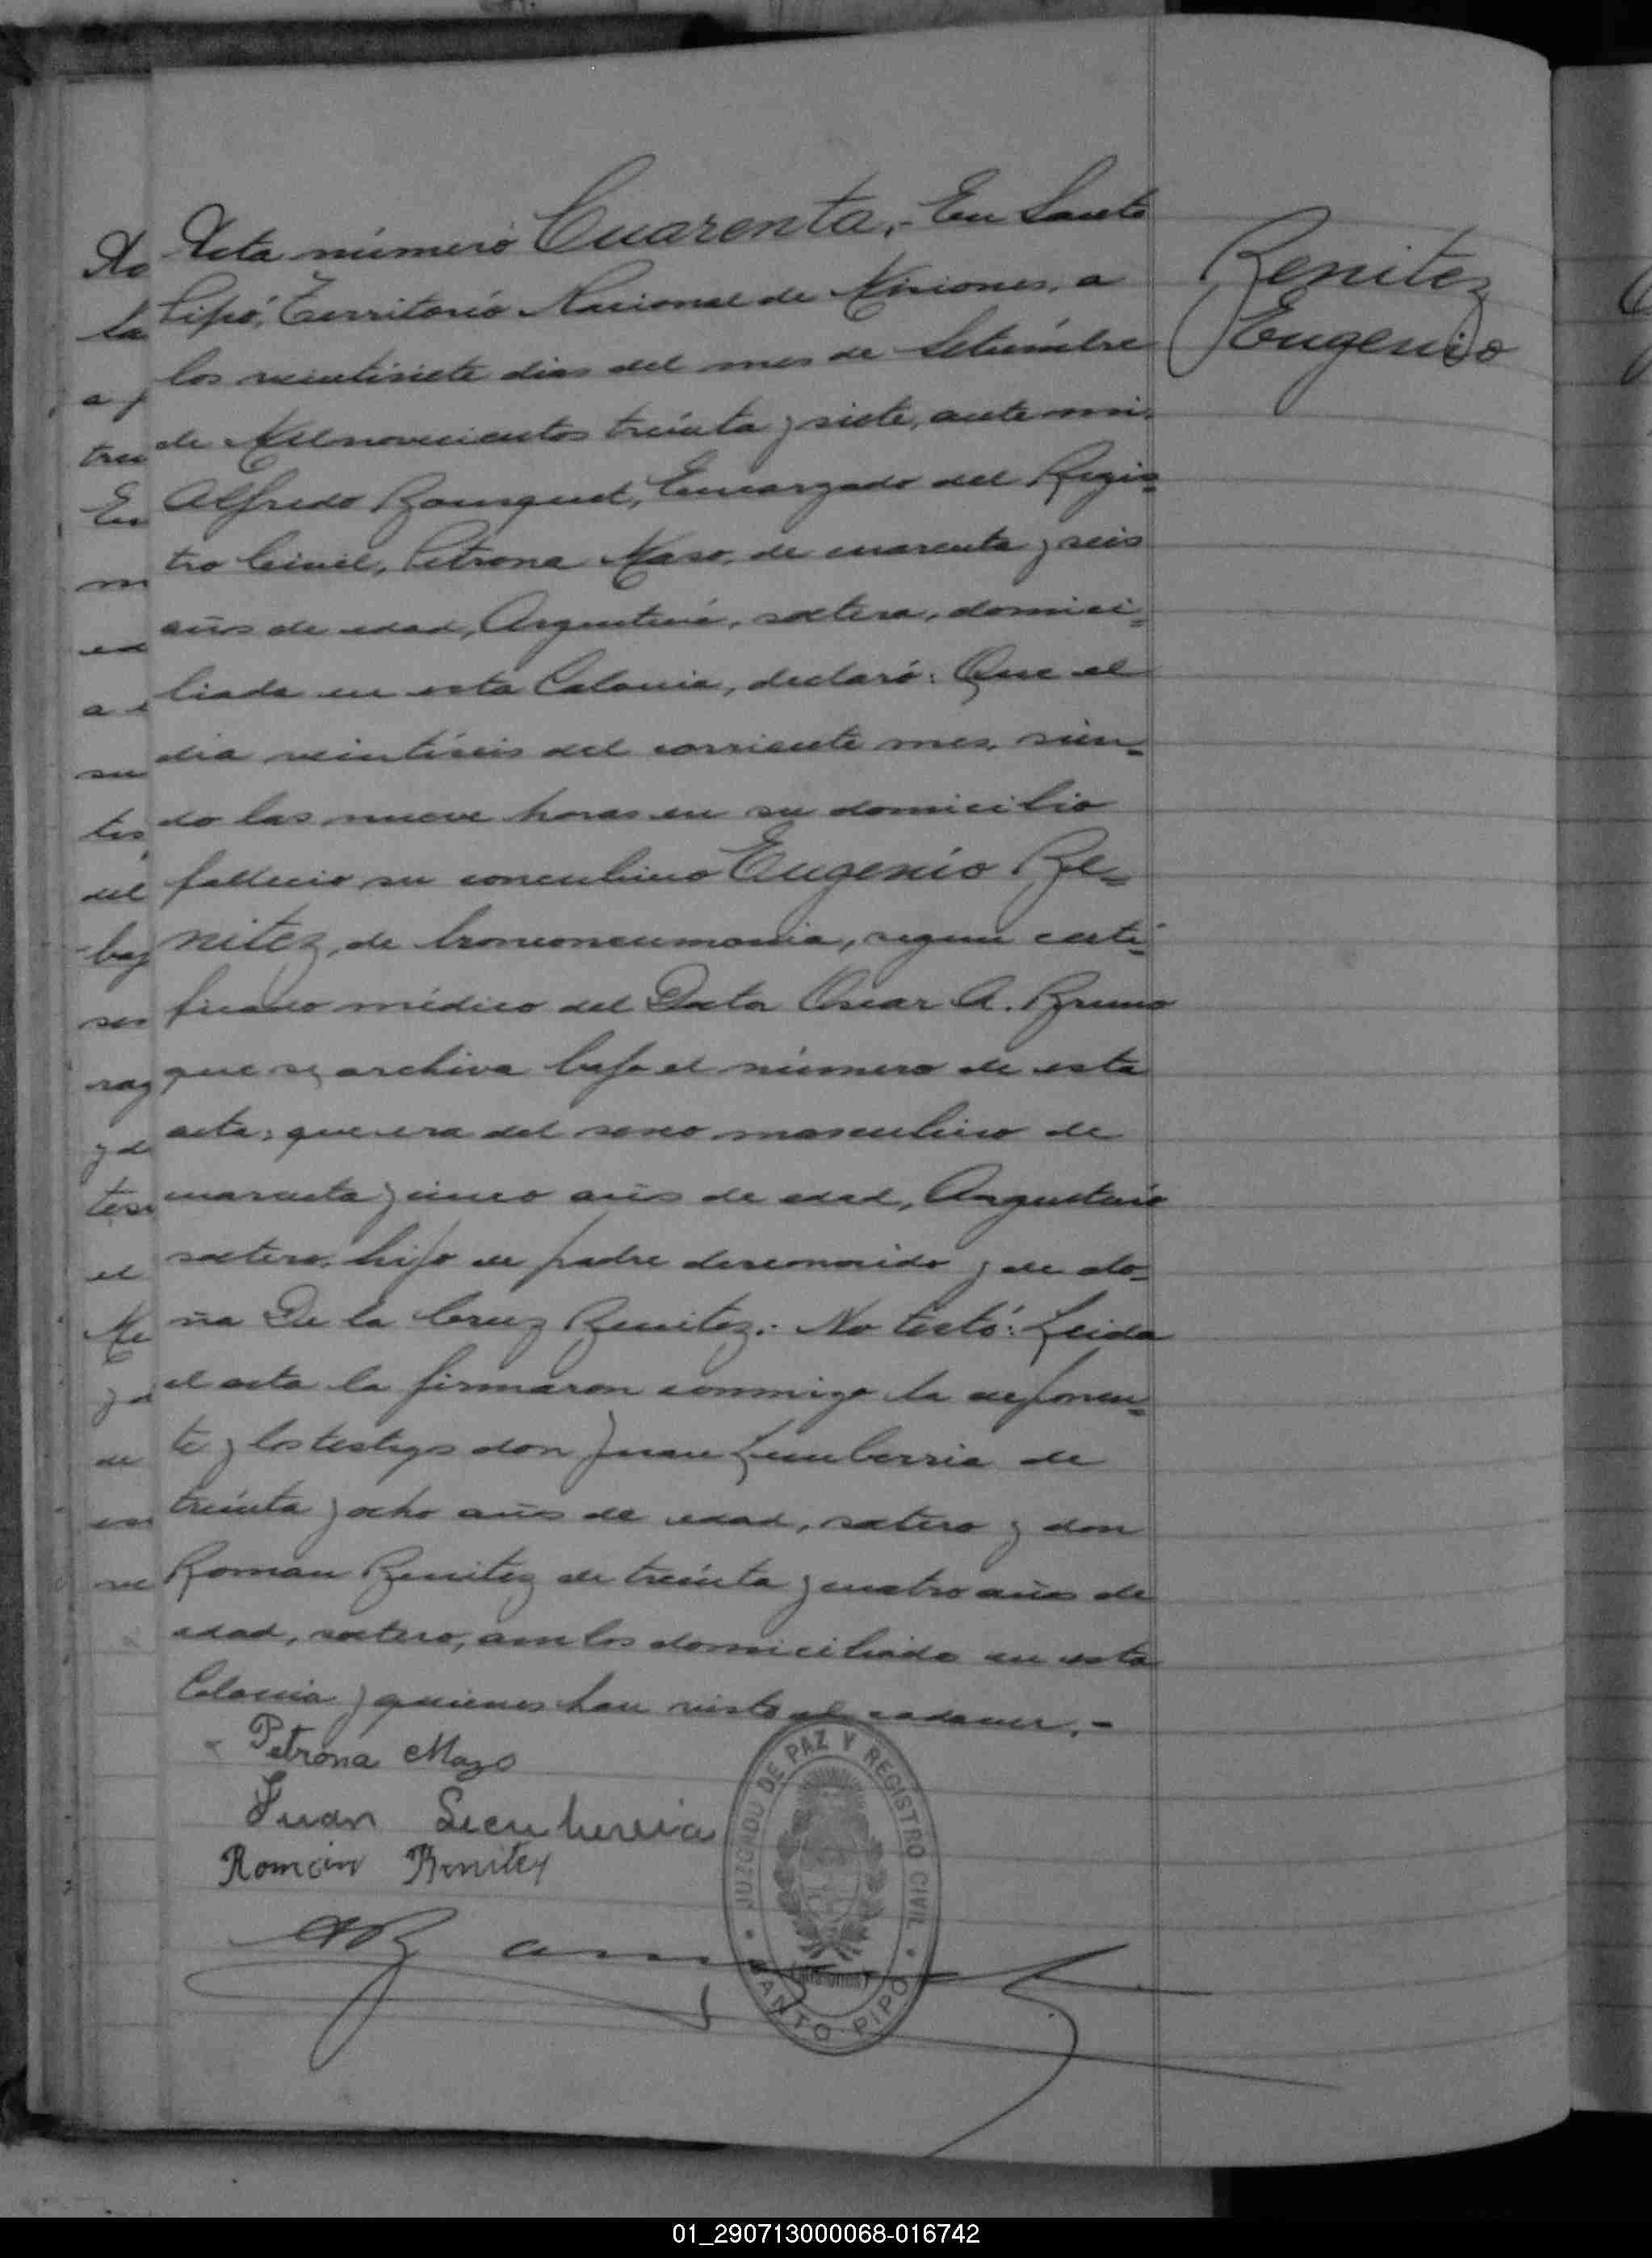 Acta número Cuarenta.- En Santo
Pipó, Territorio Nacional de Misiones, a
los veintisiete dias del mes de Setiembre
de Mil novecientos treinta y siete, ante mi,
Alfredo Bousquet, Encargado del Regis=
tro Civil, Petrona Maso, de cuarenta y seis
años de edad, Argentina, soltera, domici=
liada en esta Colonia, declaró: Que el
dia veintiseis del corriente mes, sien=
do las nueve horas en su domicilio
fallecio su concubino Eugenio Be=
nitez, de bronconeumonia, segun certi=
ficado médico del Doctor Oscar A. Bruno
que se archiva bajo el número de esta
acta; que era del sexo masculino de
cuarenta y cinco años de edad, Argentino
soltero, hijo de padre desconocido y de do=
ña De la Cruz Benitez.- No testó: Leida
el acta la firmaron conmigo la deponen=
te y los testigos don Juan de
treinta y ocho años de edad, soltero y don
Roman Benitez de treinta y cuatro años de
edad, soltero, ambos domiciliado en esta
Colonia y quienes han visto el cadaver.-
Petrona Mazo
Juan
Román Benitez
Benitez
Eugenio
JUZGADO DE PAZ Y REGISTRO CIVIL
(Misiones)
SANTO PIPO
01_290713000068-016742